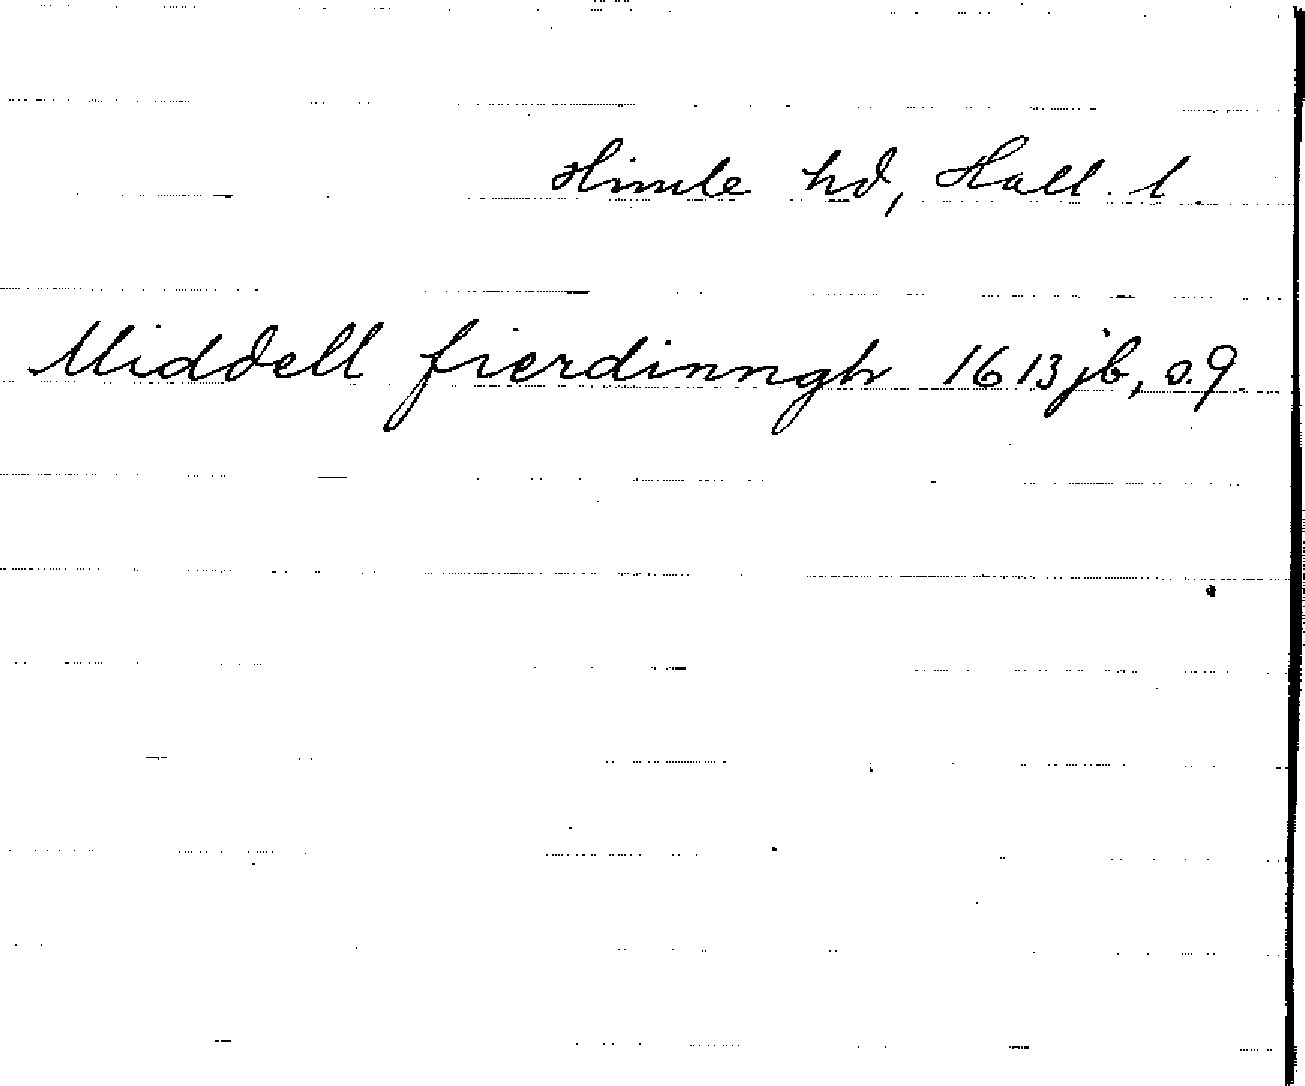 Himle hd, Hall. l.
Middell fierdinngh 1613 jb, s. 9